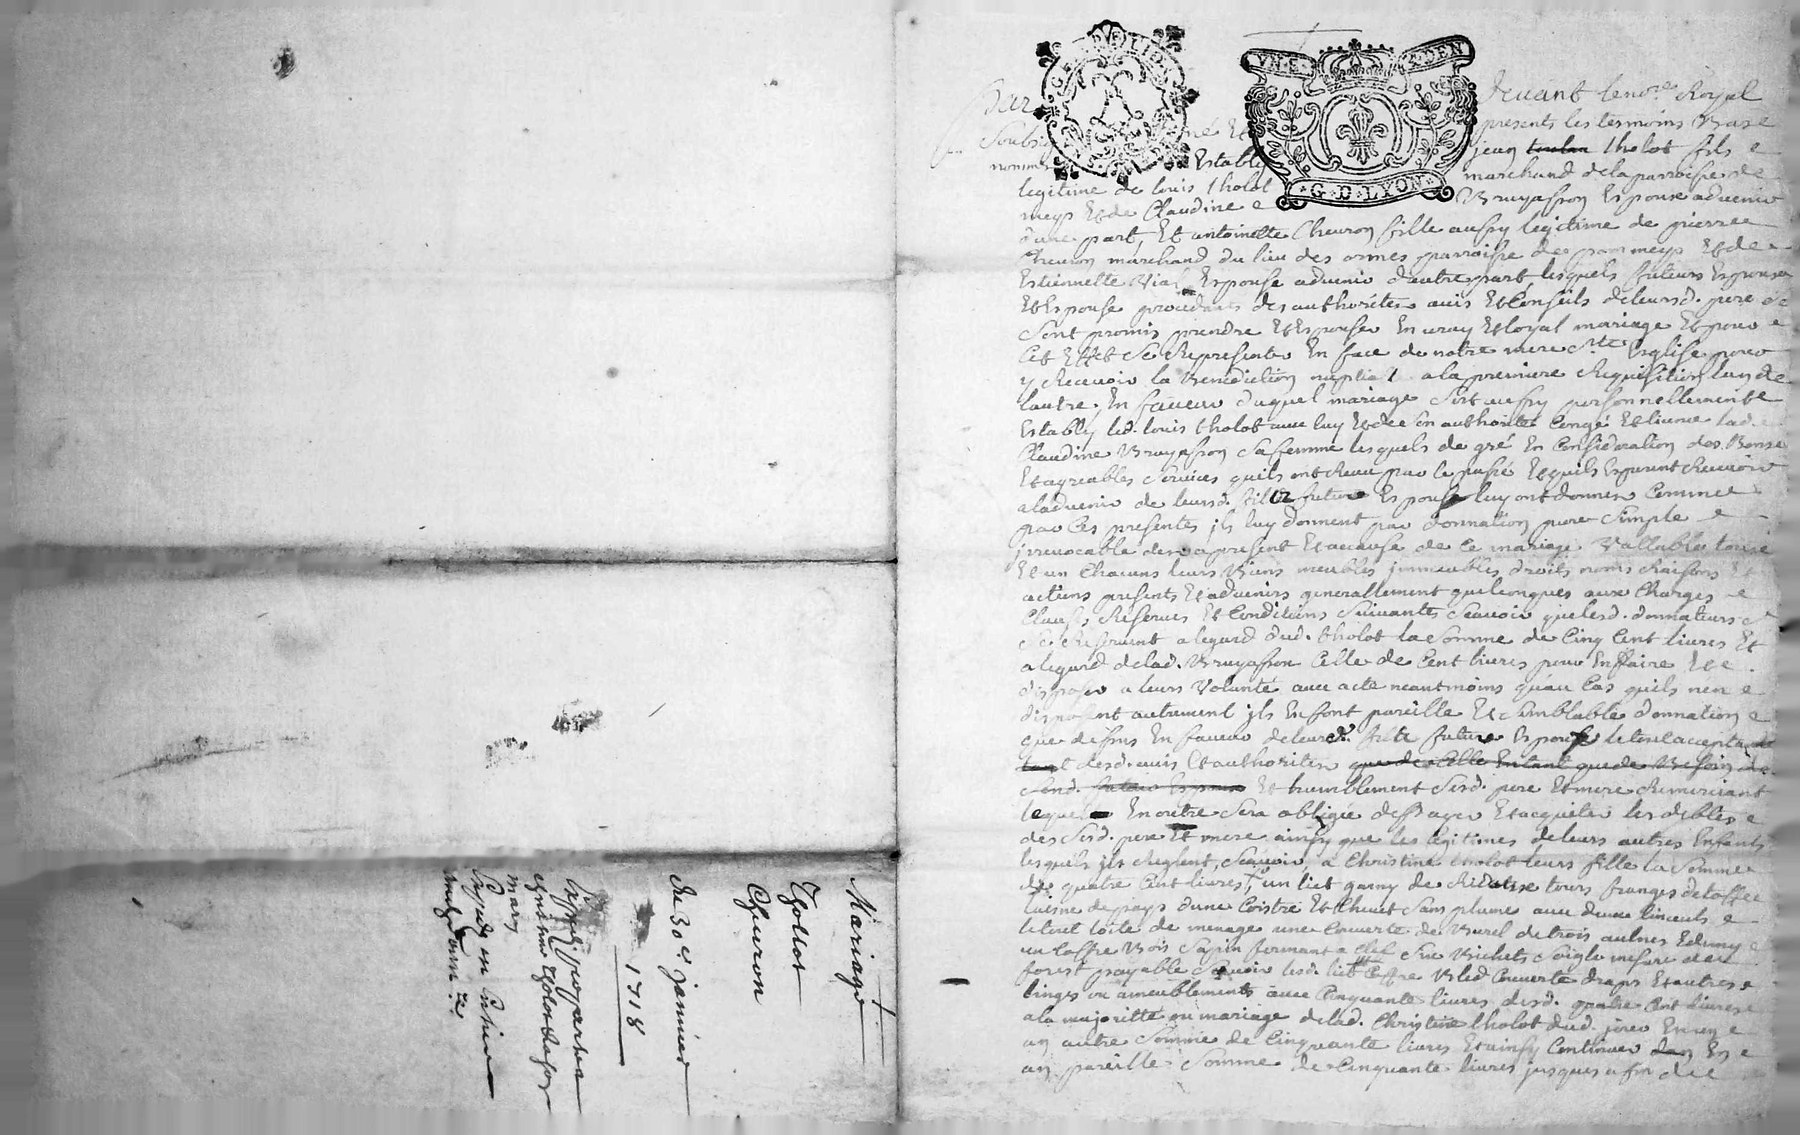 GE D LION
VN S DEN
G D LYON
Par devant le no.re Royal
Soubsigné Et presents les tesmoins Bas e
nommes Estably jean tholot fils e
legitime de louis tholot marchand de la parroisse de
meys Et de Claudine e Bruyasson Espoux advenir
d'une part, Et antoinette Cheuron fille aussy legitime de pierre e
Cheuron marchand du lieu des ormes parroisse de pommeys Et de
Estiennette Vial Espouse advenir d'autre part, lesquels futeurs Espoux
Et Espouse procedants des authorites avis Et Conseils de leursd. pere
Sont promis prendre Et Espouser En vray Et loyal mariage Et pour e
Cet Effet Se Representer En face de notre mere S.te Esglise pour
y Recevoir la Benediction nuptial a la premiere Requisition lun de
lautre. En faveur duquel mariage Sont aussy personnellement e
Estably led. louis tholot avec luy Et de Son authorite Congé Et licence lad.
Claudine Bruyasson Sa femme lesquels de gré En Consideration des Bons
Et agreables Services quils ont Receu par le passé Et quils Esperent Recevoir
a ladvenir de leurd. fils futur Espoux luy ont donner Comme e
par Ces presentes jls luy donnent par donnation pure Simple e
jrrevocable des a present Et a cause de Ce mariage Vallable tous
Et un Chacuns leurs Biens meubles jmmeubles droits noms Raisons Et
actions presents Et advenirs generallement quelconques aux Charges e
Clauses Reserves Et Conditions Suivantes Scavoir que lesd. donnateurs
Se Reservent a legard dud. tholot la Somme de Cinq Cent livres Et
a legard de lad. Bruyasson Celle de Cent livres pour En faire Et e
disposer a leurs Volonté avec acte neantmoins quau Cas quils nen e
disposent autrement jls En font pareille Et Semblable donnation e
que dessus En faveur de leurd. fils futur Espoux le tout accepte
desd. avis Et authorites que de Celle Entant que de Besoin
Sond. futeur Espoux Et humblement Sesd. pere Et mere Remerciant
lequel En outre Sera obligé de payer Et acquiter les debtes e
des Sesd. pere Et mere ainsy que les legitimes de leurs autres Enfants
lesquels jls Reglent, Scavoir, a Christine tholot leurs fille la Somme
de quatre Cent livres, un lict garny de Rideaux tours franges detoffe
laisne de pays dune Coistre Et Chevet Sans plume avec deux linceuls e
le tout toile de menage une Couverte de Burel de trois aulnes Et demy
un Coffre Bois Sapin fermant a Clef Six Bichets Seigle mesure de
forest payable Scavoir lesd. lict Coffre Bled Couverte draps Et autres e
linges ou ameublements avec Cinquante livres desd. quatre Cent livres
a la majoritté ou mariage de lad. Christine tholot dud. jour En un e
an autre Somme de Cinquante livres Et ainsy Continuer En e
an pareille Somme de Cinquante livres jusques a fin de
Mariage
Thollot
Cheuron
du 30.e janvier
1718
mary